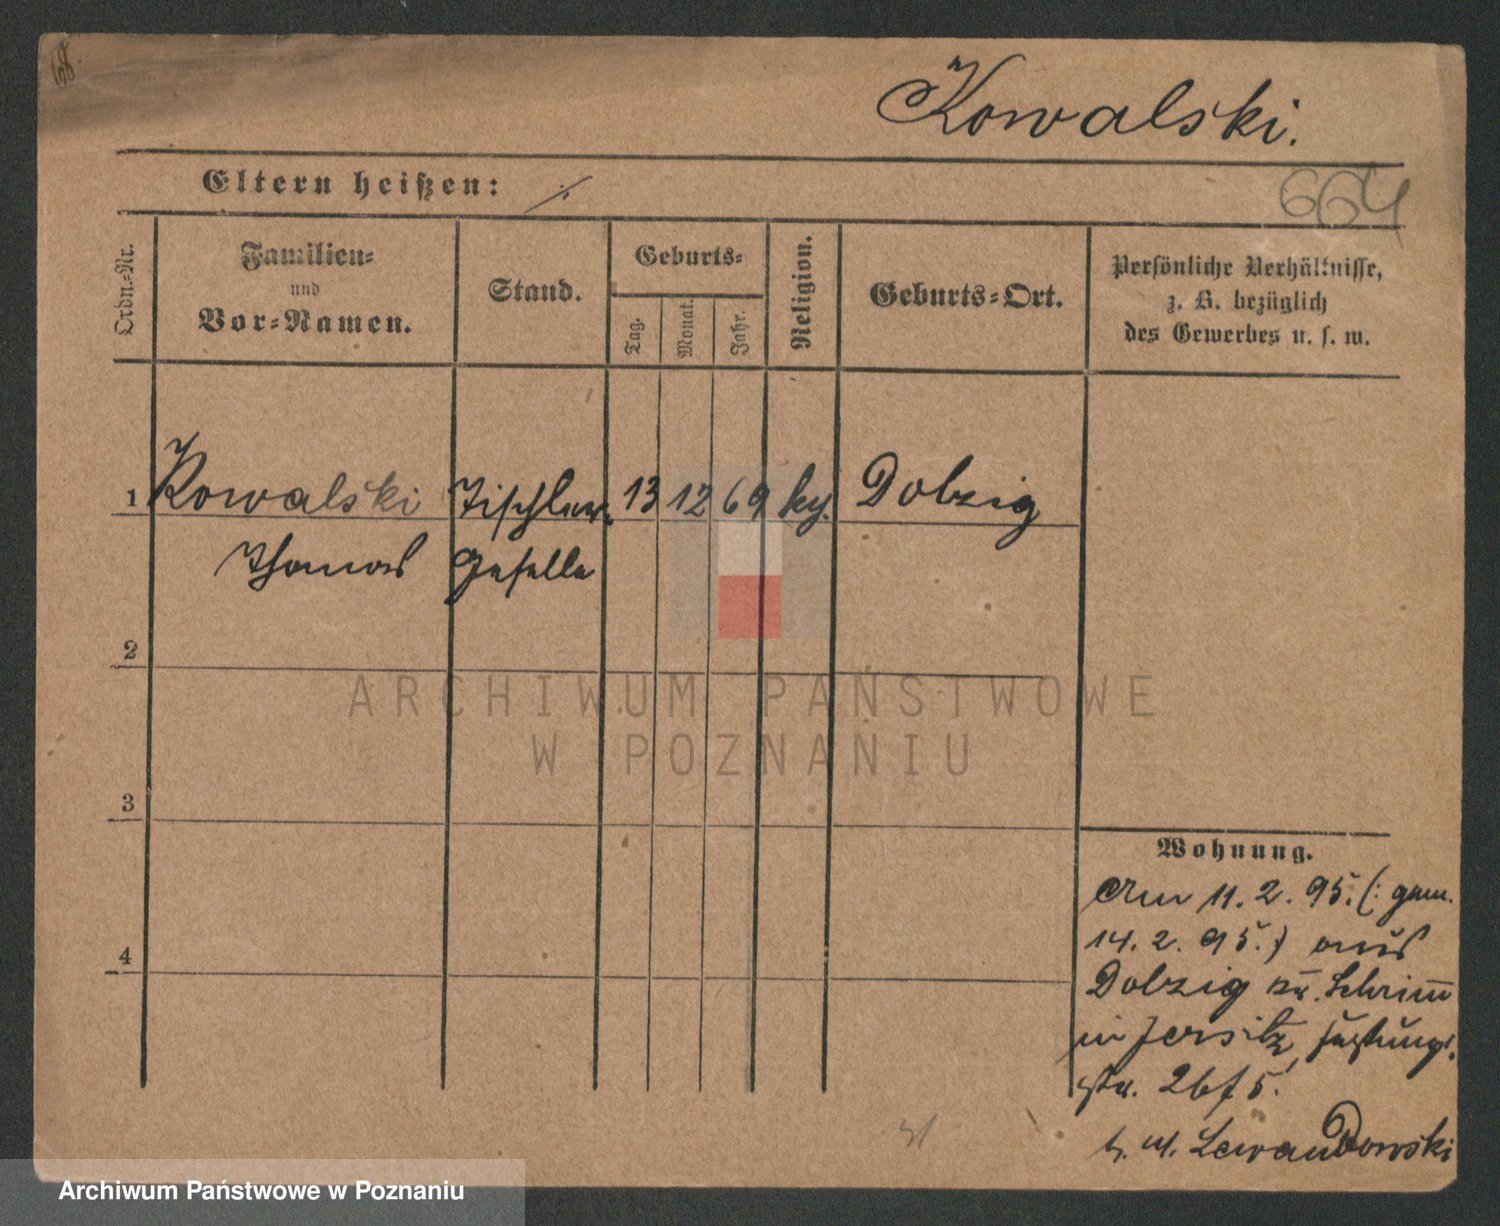 Kowalski.
Eltern heißen: ⁒
664
Ordn.-Nr.
Familien-
und
Vor-Namen.
Stand.
Geburts-
Tag.
Monat.
Jahr.
Religion.
Geburts-Ort.
Persönliche Verhältnisse,
z. B. bezüglich
des Gewerbes u. s. w.
1 Kowalski Tischler- 13 12 69 Dolzig
Thomas Geselle
2
3
4
Wohnung.
Am 11. 2. 95. (: gem.
14. 2. 95. :) aus
Dolzig Kr. Schrimm
in Jersitz, Festungs-
str.
Lewandowski
ARCHIWUM PAŃSTWOWE
W POZNANIU
Archiwum Państwowe w Poznaniu